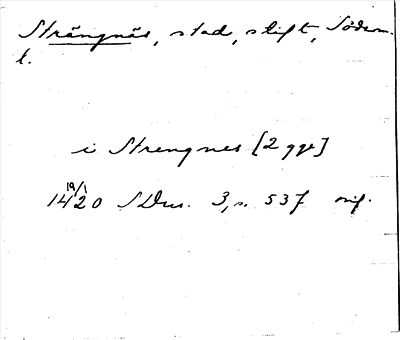 Strängnäs, stad, stift, Söderm.
t.
i Strengnes [2 ggr]
19/1
1420 SDns. 3, s. 537 orig.